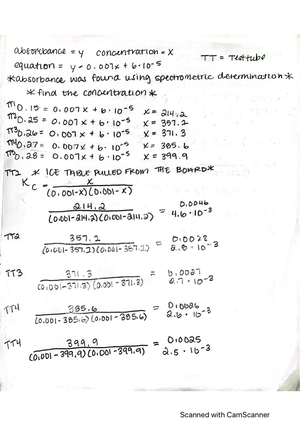 absorbance = y concentration = x TT = Test tube
equation = y = 0.007x + 6·10⁻⁵
*absorbance was found using spectrometric determination*
* find the concentration *
TT1 0.15 = 0.007x + 6·10⁻⁵ x = 214.2
TT2 0.25 = 0.007x + 6·10⁻⁵ x = 357.1
TT3 0.26 = 0.007x + 6·10⁻⁵ x = 371.3
TT4 0.27 = 0.007x + 6·10⁻⁵ x = 385.6
TT5 0.28 = 0.007x + 6·10⁻⁵ x = 399.9
TT1 * ICE TABLE PULLED FROM THE BOARD*
Kc = x
(0.001-x)(0.001-x)
214.2 = 0.0046
(0.001-214.2)(0.001-214.2) 4.6·10⁻³
TT2 357.1 = 0.0028
(0.001-357.1)(0.001-357.1) 2.8·10⁻³
TT3 371.3 = 0.0027
(0.001-371.3)(0.001-371.3) 2.7·10⁻³
TT4 385.6 = 0.0026
(0.001-385.6)(0.001-385.6) 2.6·10⁻³
TT4 399.9 = 0.0025
(0.001-399.9)(0.001-399.9) 2.5·10⁻³
Scanned with CamScanner